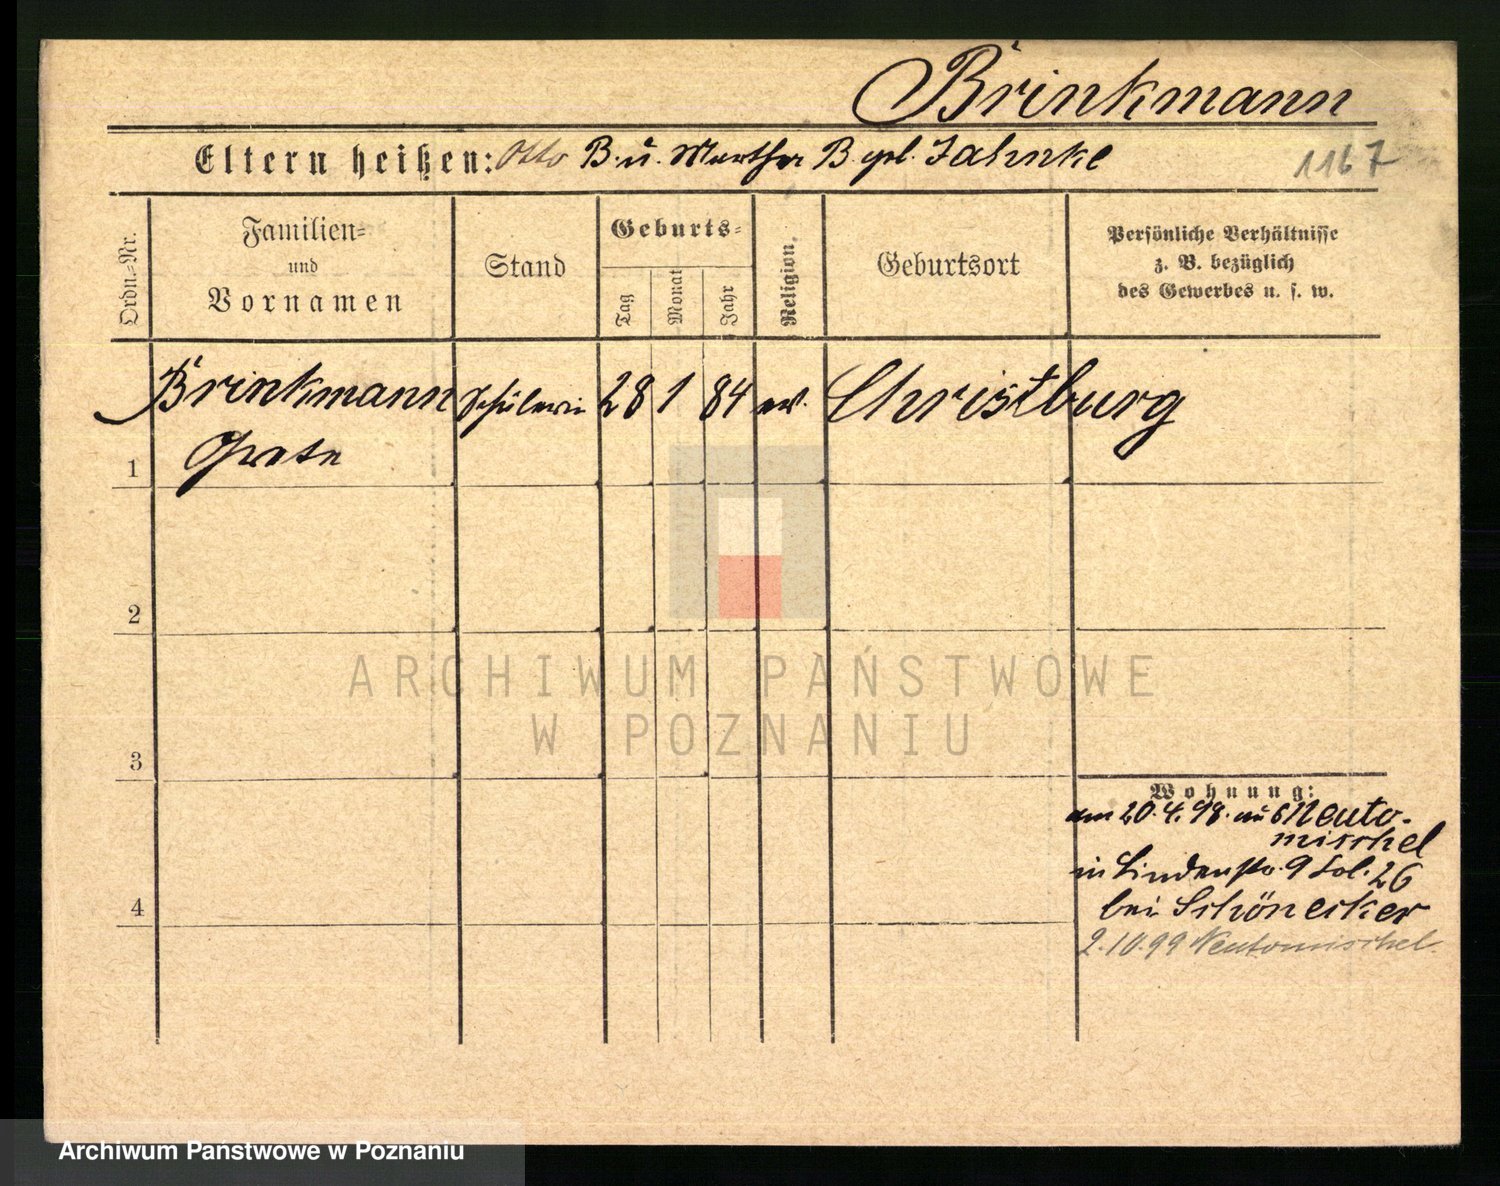 Brinkmann
Eltern heißen: Otto B. u. Marthe B. geb. Jahnke 1167
Ordn.-Nr.
Familien- und Vornamen
Stand
Geburts-
Tag
Monat
Jahr
Religion.
Geburtsort
Persönliche Verhältnisse
z. B. bezüglich
des Gewerbes u. s. w.
Brinkmann Schülerin 28 1 84 ev. Christburg
1 Grete
2
ARCHIWUM PAŃSTWOWE
W POZNANIU
3
Wohnung:
am 20.4.98. aus Neuto-
mischel
in Lindenstr. 9 Fol. 26
4
bei Schönecker
2.10.99 Neutomischel.
Archiwum Państwowe w Poznaniu